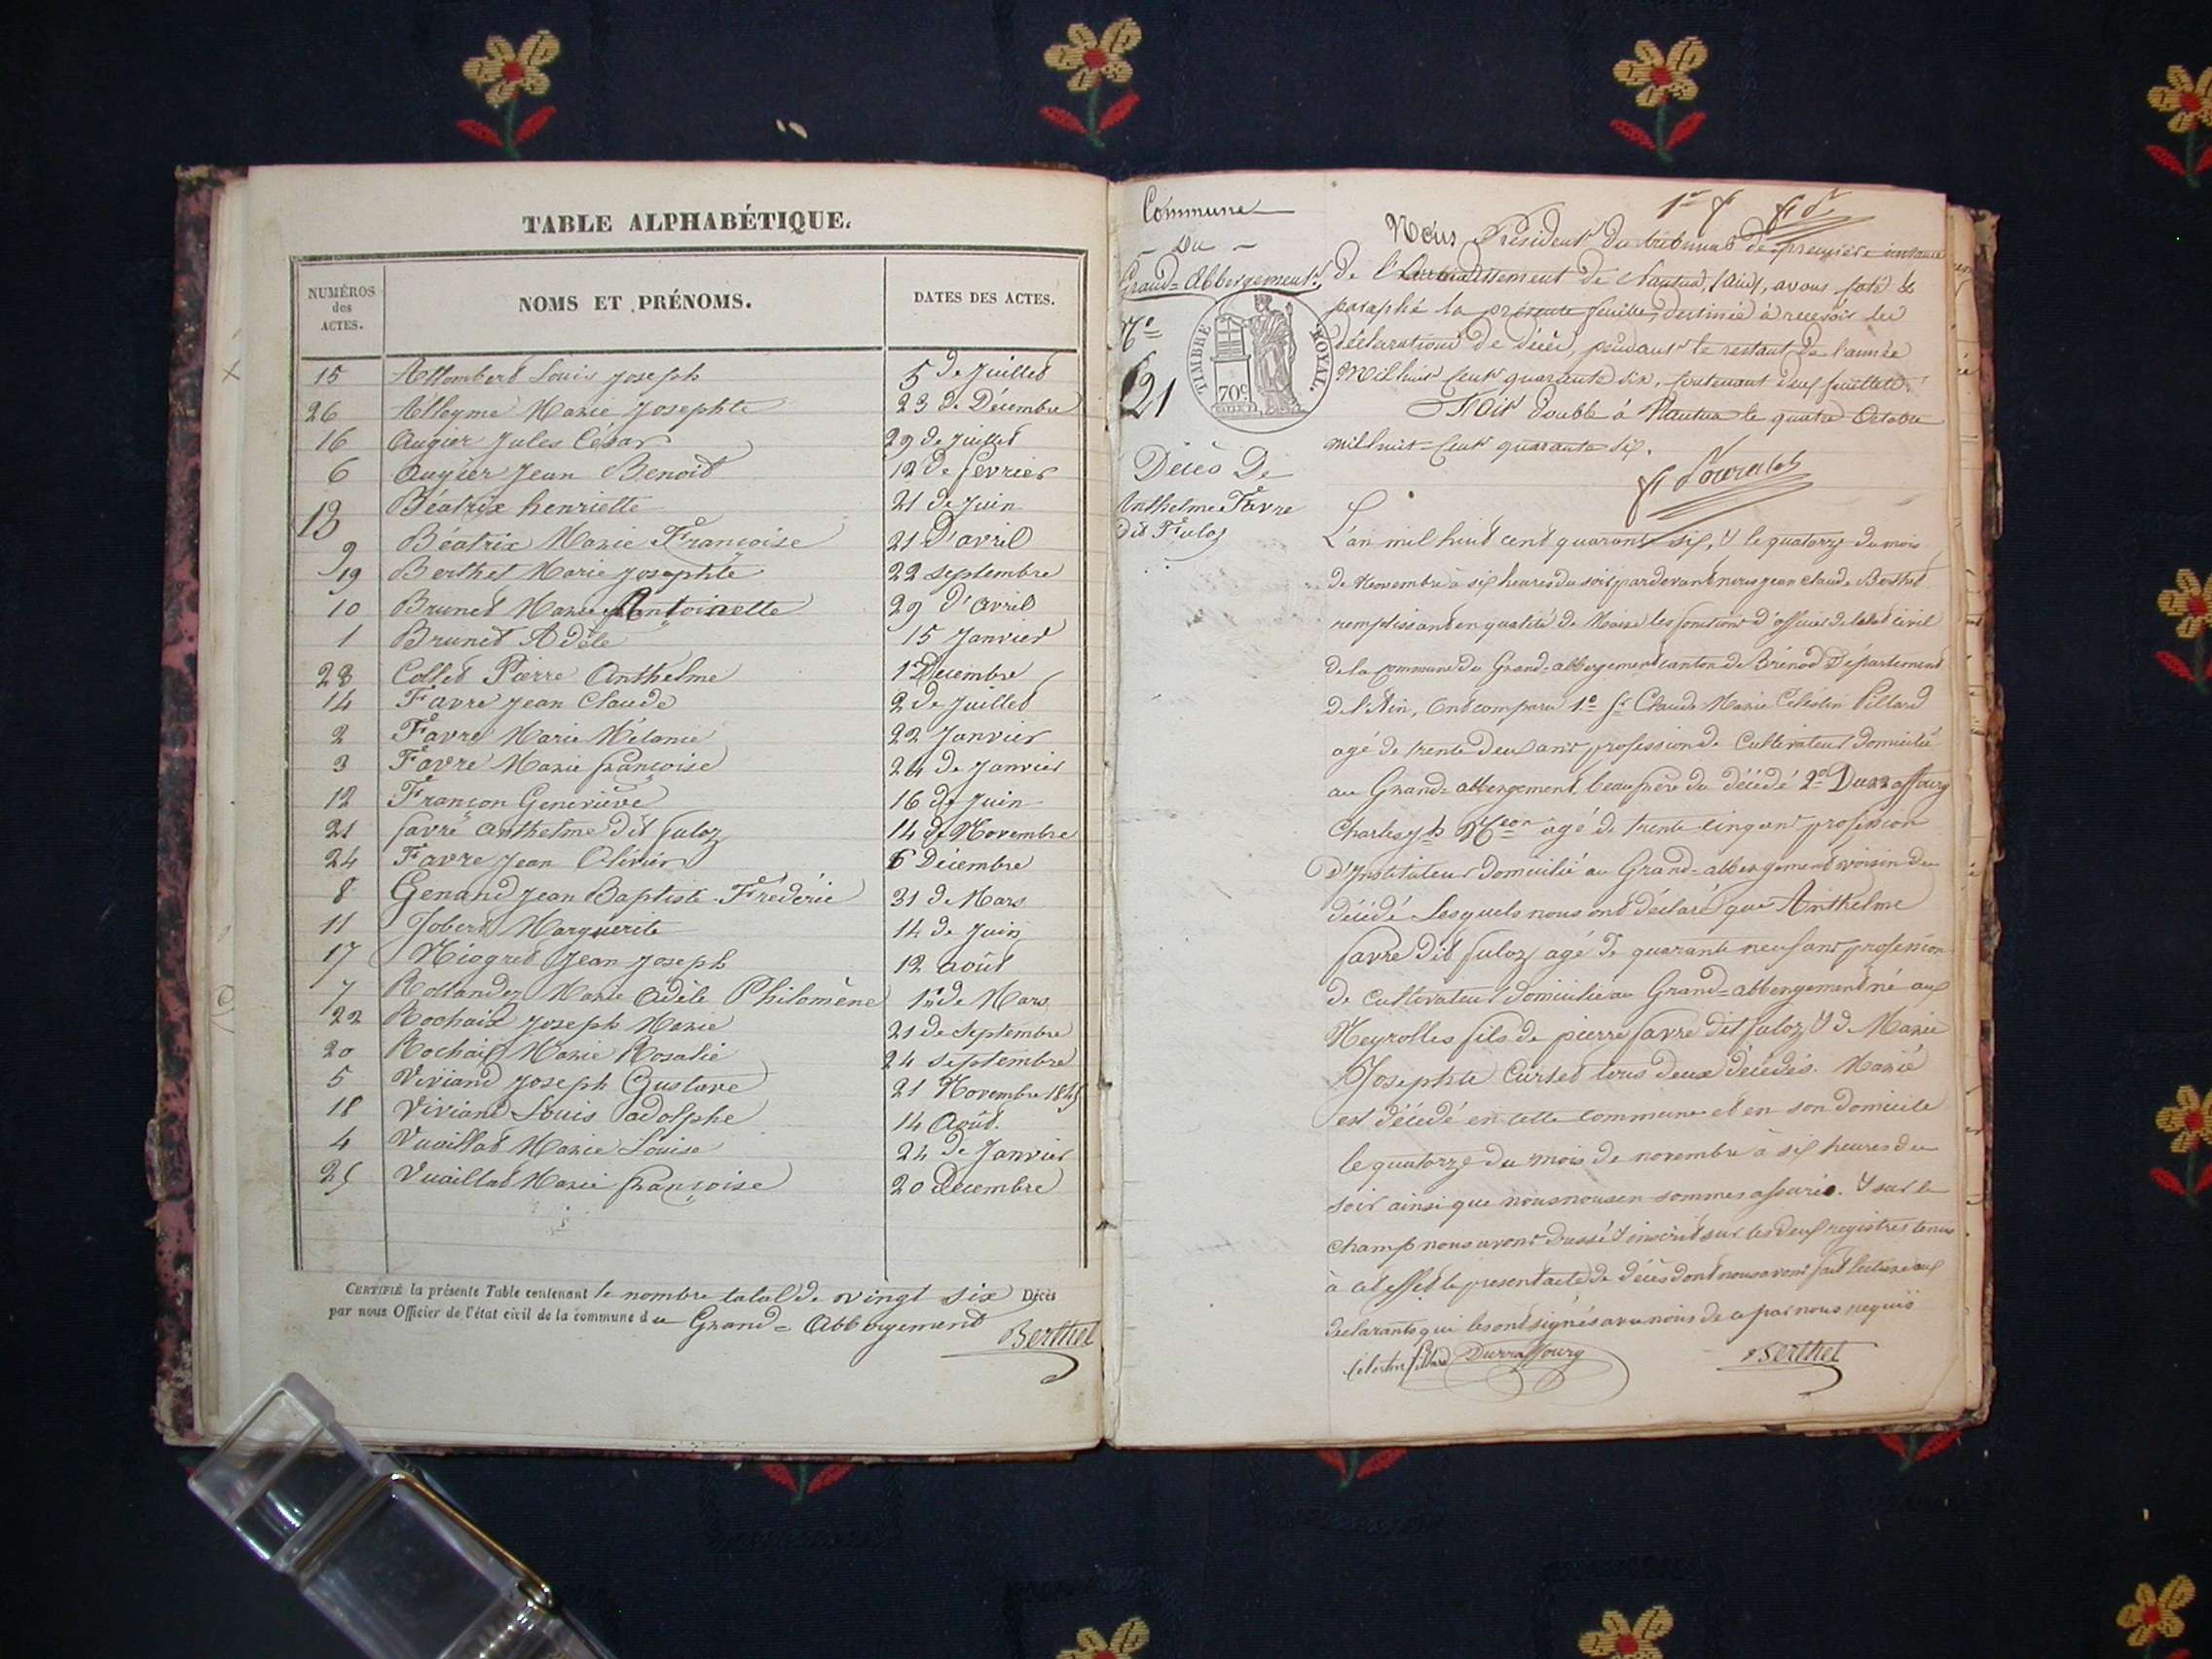 TABLE ALPHABÉTIQUE.
NUMÉROS des ACTES.
NOMS ET PRÉNOMS.
DATES DES ACTES.
15 Allombert Louis Joseph 5 de Juillet
26 Alleyme Marie Josephte 23 de Décembre
16 Augier Jules César 29 de Juillet
6 Augier Jean Benoit 12 de fevrier
13 Béatrix henriette 21 de Juin
9 Béatrix Marie Françoise 21 D'avril
19 Berthet Marie Josephte 22 septembre
10 Brunet Marie Antoinette 29 d'avril
1 Brunet Adèle 15 Janvier
23 Collet Pierre Anthelme 1er Decembre
14 Favre Jean Claude 2 de Juillet
2 Favre Marie Mélanie 22 Janvier
3 Favre Marie françoise 24 de Janvier
12 Françon Geneviève 16 de Juin
21 favre anthelme dit fuloz 14 de Novembre
24 Favre Jean Olivier 6 Décembre
8 Genand Jean Baptiste Fréderic 31 de Mars
11 Jobert Marguerite 14 de Juin
17 Miogret Jean Joseph 12 août
7 Rollandez Marie Adèle Philomène 1er de Mars
22 Rochaix Joseph Marie 21 de Septembre
20 Rochaix Marie Rosalie 24 septembre
5 Viviand Joseph Gustave 21 Novembre 1845
18 Viviand Louis adolphe 14 Août.
4 Vuaillat Marie Louise 24 de Janvier
25 Vuaillat Marie françoise 20 decembre
CERTIFIÉ la présente Table contenant le nombre total de vingt six Décès
par nous Officier de l'état civil de la commune du Grand-Abbergement
Berthet
Commune
Du
Grand-Abbergement
N°
21
TIMBRE ROYAL.
70c
Décès De
Anthelme Favre
dit Fuloz
Nous Président du tribunal de première instance
de l'Arrondissement de Nantua, (Ain), avons coté &
paraphé la présente feuille, destinée à recevoir les
déclarations de décès, pendant le restant de l'année
Mil huit cent quarante six, contenant deux feuillets.
Fait double à Nantua le quatre Octobre
mil huit-cent quarante six.
L'an mil huit cent quarante six, & le quatorze du mois
de Novembre à six heures du soir pardevant nous jean claude Berthet
remplissant en qualité de Maire les fonctions d'officier de l'état civil
de la commune du Grand-abbergement canton de Brénod Département
de l'Ain, Ont comparu 1° Sr Claude Marie Célestin Pillard
agé de trente deux ans profession de Cultivateur domicilié
au Grand-abbergement beaufrère du décédé 2° Durraffourg
Charles agé de trente cinq ans profession
D'Instituteur domicilié au Grand-abbergement voisin du
décédé Lesquels nous ont déclaré que Anthelme
favre dit fuloz agé de quarante neuf ans profession
de Cultivateur domicilié au Grand-abbergement né aux
Neyrolles fils de pierre favre dit fuloz & de Marie
Josephte Curtet tous deux décédés. Marié
est décédé en cette commune et en son domicile
le quatorze du mois de novembre à six heures du
soir ainsi que nous nous en sommes assurés. & sur le
champ nous avons dressé & inscrit sur les deux registres tenus
à cet effet le present acte de décès dont nous avons fait lecture aux
declarants qui les ont signés avec nous de ce par nous requis
Célestin Pillard Durraffourg Berthet